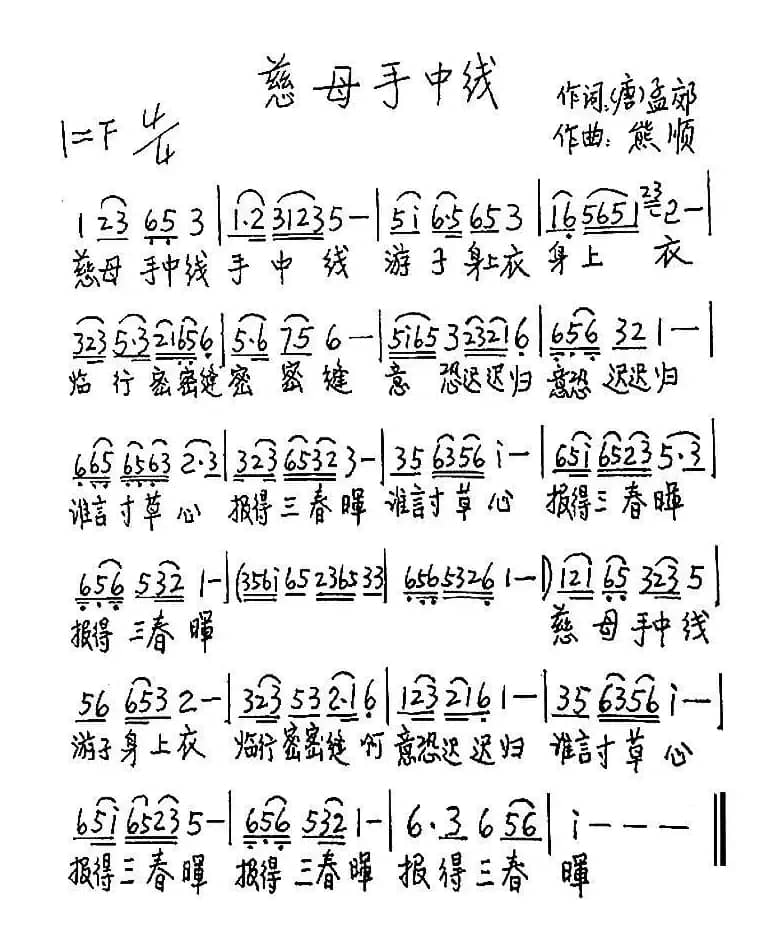 慈母手中线
作词:(唐)孟郊
1=F 4/4
作曲:熊顺
1 23 65 3 | 1·2 31235 - | 5i 6·5 653 | 16 5651 23 2 - |
慈母 手中线 手 中 线 游 子 身上衣 身上 衣
323 5·3 21656 | 5·6 75 6 - | 5i65 3 23216 | 656 321 - |
临 行 密密缝 密 密 缝 意 恐迟迟归 意恐 迟迟归
665 6563 2·3 | 323 6532 3 - | 35 6356 i - | 65i 6523 5·3 |
谁言寸草心 报得三春暉 谁言寸草心 报得三春暉
656 532 1 - | (356i 65 236533 | 6565326 1 - ) | 121 65 323 5 |
报得 三春暉 慈 母 手中线
56 653 2 - | 323 53 2·16 | 123 216 1 - | 35 6356 i - |
游子身上衣 临行密密缝 啊 意恐迟 迟归 谁言寸草心
65i 6523 5 - | 656 532 1 - | 6·3 6 56 | i - - - ‖
报得三春暉 报得三春暉 报得三春 暉